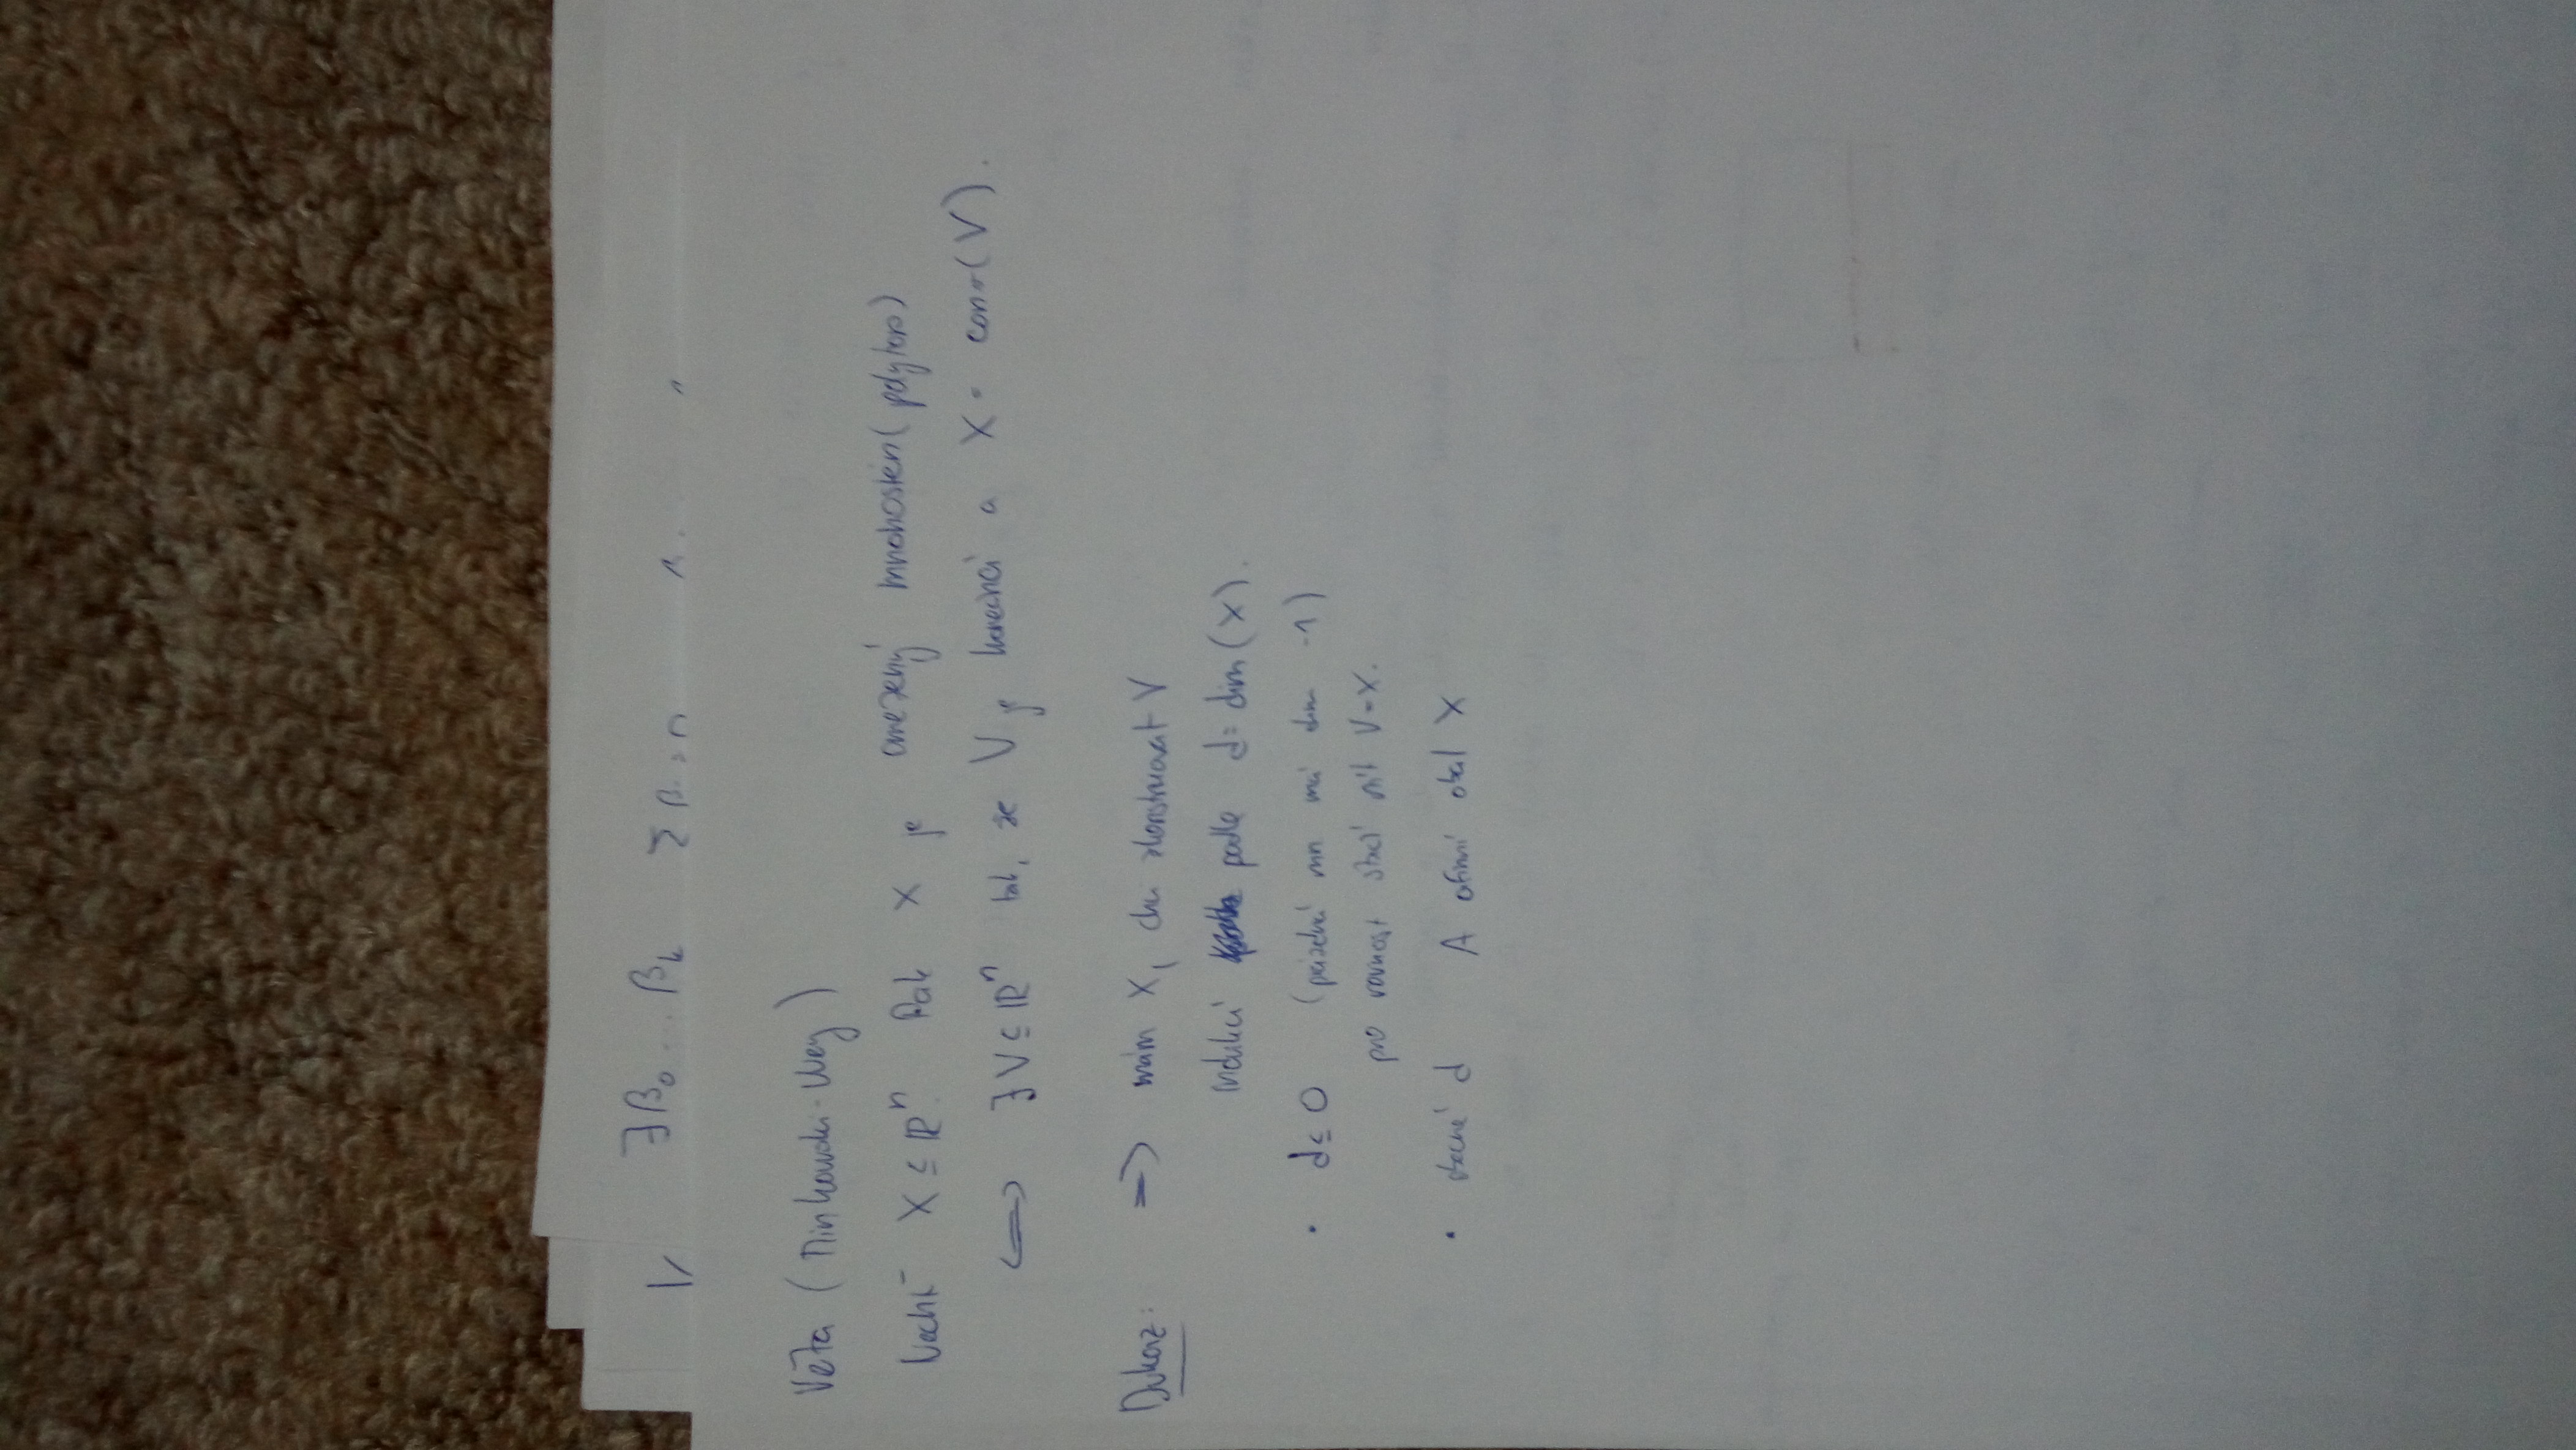 ∃β₀ ... βₖ
Věta (Minkowski-Wey)
Nechť X ⊆ ℝⁿ. Pak X je omezený mnohostěn (polytop)
⟺ ∃V ⊆ ℝⁿ tak, že V je konečná a X = conv(V).
Důkaz: ⇒ mám X, chci zkonstruovat V
indukcí podle d = dim(X).
• d ≤ 0 (prázdná mn má dim -1)
pro rovnost stačí vzít V=X.
• obecné d A afinní obal X